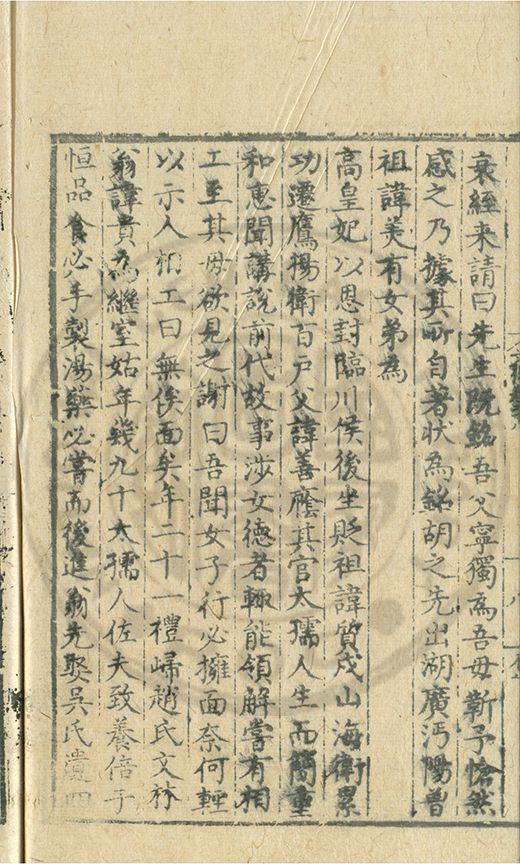 衰絰来請曰先生既銘吾父寧獨為吾母靳予愴然
感之乃據其所自著状為銘胡之先出湖廣沔陽曽
祖諱美有女弟為
高皇妃以恩封臨川侯後坐貶祖諱質戍山海衛累
功遷鷹揚衛百戸父諱善廕其官太孺人生而簡重
和惠聞講說前代故事渉女德者輒能領解嘗有相
工至其母欲見之謝曰吾聞女子行必擁面奈何輕
以示人相工曰無俟面矣年二十一禮歸趙氏文林
翁諱貴為繼室姑年幾九十太孺人佐夫致養倍于
恒品食必手製湯藥必嘗而後進翁先娶吳氏遺四